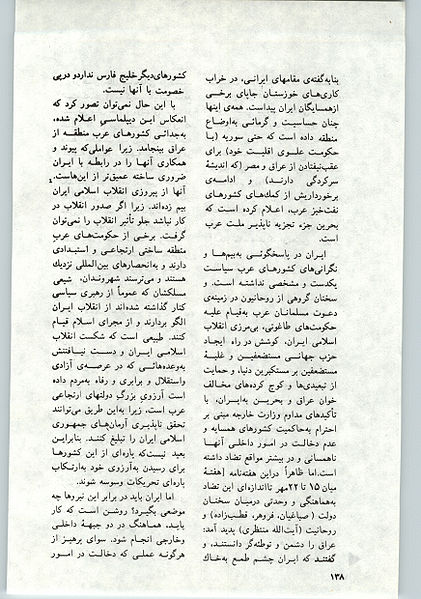 بنابه‌گفته‌ی مقامهای ایرانی، در خراب
کاری‌های خوزستان جاپای برخی
ازهمسایگان ایران پیداست. همه‌ی اینها
چنان حساسیت و گرمائی به‌اوضاع
منطقه داده است که حتی سوریه (با
حکومت علوی اقلیت خود) برای
عقب‌نیفتادن از عراق و مصر (که اندیشهٔ
سرکردگی دارند) و ادامه‌ی
برخورداریش از کمک‌های کشورهای
نفت‌خیز عرب، اعلام کرده است که
بحرین جزء تجزیه ناپذیر ملت عرب
است.
ایران در پاسخگوئی به‌بیم‌ها و
نگرانی‌های کشورهای عرب سیاست
یکدست و مشخصی نداشته است. و
سخنان گروهی از روحانیون در زمینه‌ی
دعوت مسلمانان عرب به‌قیام علیه
حکومت‌های طاغوتی، بی‌مرزی انقلاب
اسلامی ایران، کوشش در راه ایجاد
حزب جهانی مستضعفین و غلبهٔ
مستضعفین بر مستکبرین دنیا، و حمایت
از تبعیدی‌ها و کوچ کرده‌های مخالف
خوان عراق و بحرین به‌ایران، با
تأکیدهای مداوم وزارت خارجه مبنی بر
احترام به‌حاکمیت کشورهای همسایه و
عدم دخالت در امور داخلی آنها
ناهمسانی و در بیشتر مواقع تضاد داشته
است.اما ظاهراً دراین هفته‌نامه [هفتهٔ
میان ۱۵ تا ۲۲مهر تااندازه‌ای این تضاد
به‌هماهنگی و وحدتی درمیان سخنان
دولت ( صباغیان، فروهر، قطب‌زاده) و
روحانیت (آیت‌الله منتظری) پدید آمد:
عراق را دشمن و توطئه‌گر دانستند، و
گفتند که ایران چشم طمع به‌خاك
کشورهای‌دیگرخلیج فارس نداردو درپی
خصومت با آنها نیست.
با این حال نمی‌توان تصور کرد که
انعکاس این دیپلماسی اعلام شده،
به‌جدائی کشورهای عرب منطقه از
عراق بینجامد. زیرا عواملی‌که پیوند و
همکاری آنها را در رابطه با ایران
ضروری ساخته عمیق‌تر از این‌هاست.
آنها از پیروزی انقلاب اسلامی ایران
بیم زده‌اند. زیرا اگر صدور انقلاب در
کار نباشد جلو تأثیر انقلاب را نمی‌توان
گرفت. برخی از حکومت‌های عرب
منطقه ساختی ارتجاعی و استبدادی
دارند و به‌انحصارهای بین‌المللی نزدیك
هستند و می‌ترسند شهروندان، شیعی
مسلکشان که عموماً از رهبری سیاسی
کنار گذاشته شده‌اند از انقلاب ایران
الگو بردارند و از مجرای اسلام قیام
کنند. طبیعی است که شکست انقلاب
اسلامی ایران و دست نیافتنش
به‌وعده‌هائی که در عرصه‌ی آزادی
واستقلال و برابری و رفاه به‌مردم داده
است آرزوی بزرگِ دولتهای ارتجاعی
عرب است، زیرا به‌این طریق می‌توانند
تحقق ناپذیری آرمان‌های جمهوری
اسلامی ایران را تبلیغ کنند. بنابراین
بعید نیست‌که پاره‌ای از این کشورها
برای رسیدن به‌آرزوی خود به‌ارتکاب
پاره‌ای تحریکات وسوسه شوند.
اما ایران باید در برابر این نیروها چه
موضعی بگیرد؟ روشن است که کار
باید، هماهنگ در دو جبههٔ داخلی
وخارجی انجام شود. سوای پرهیز از
هرگونه عملی که دخالت در امور
۱۳۸